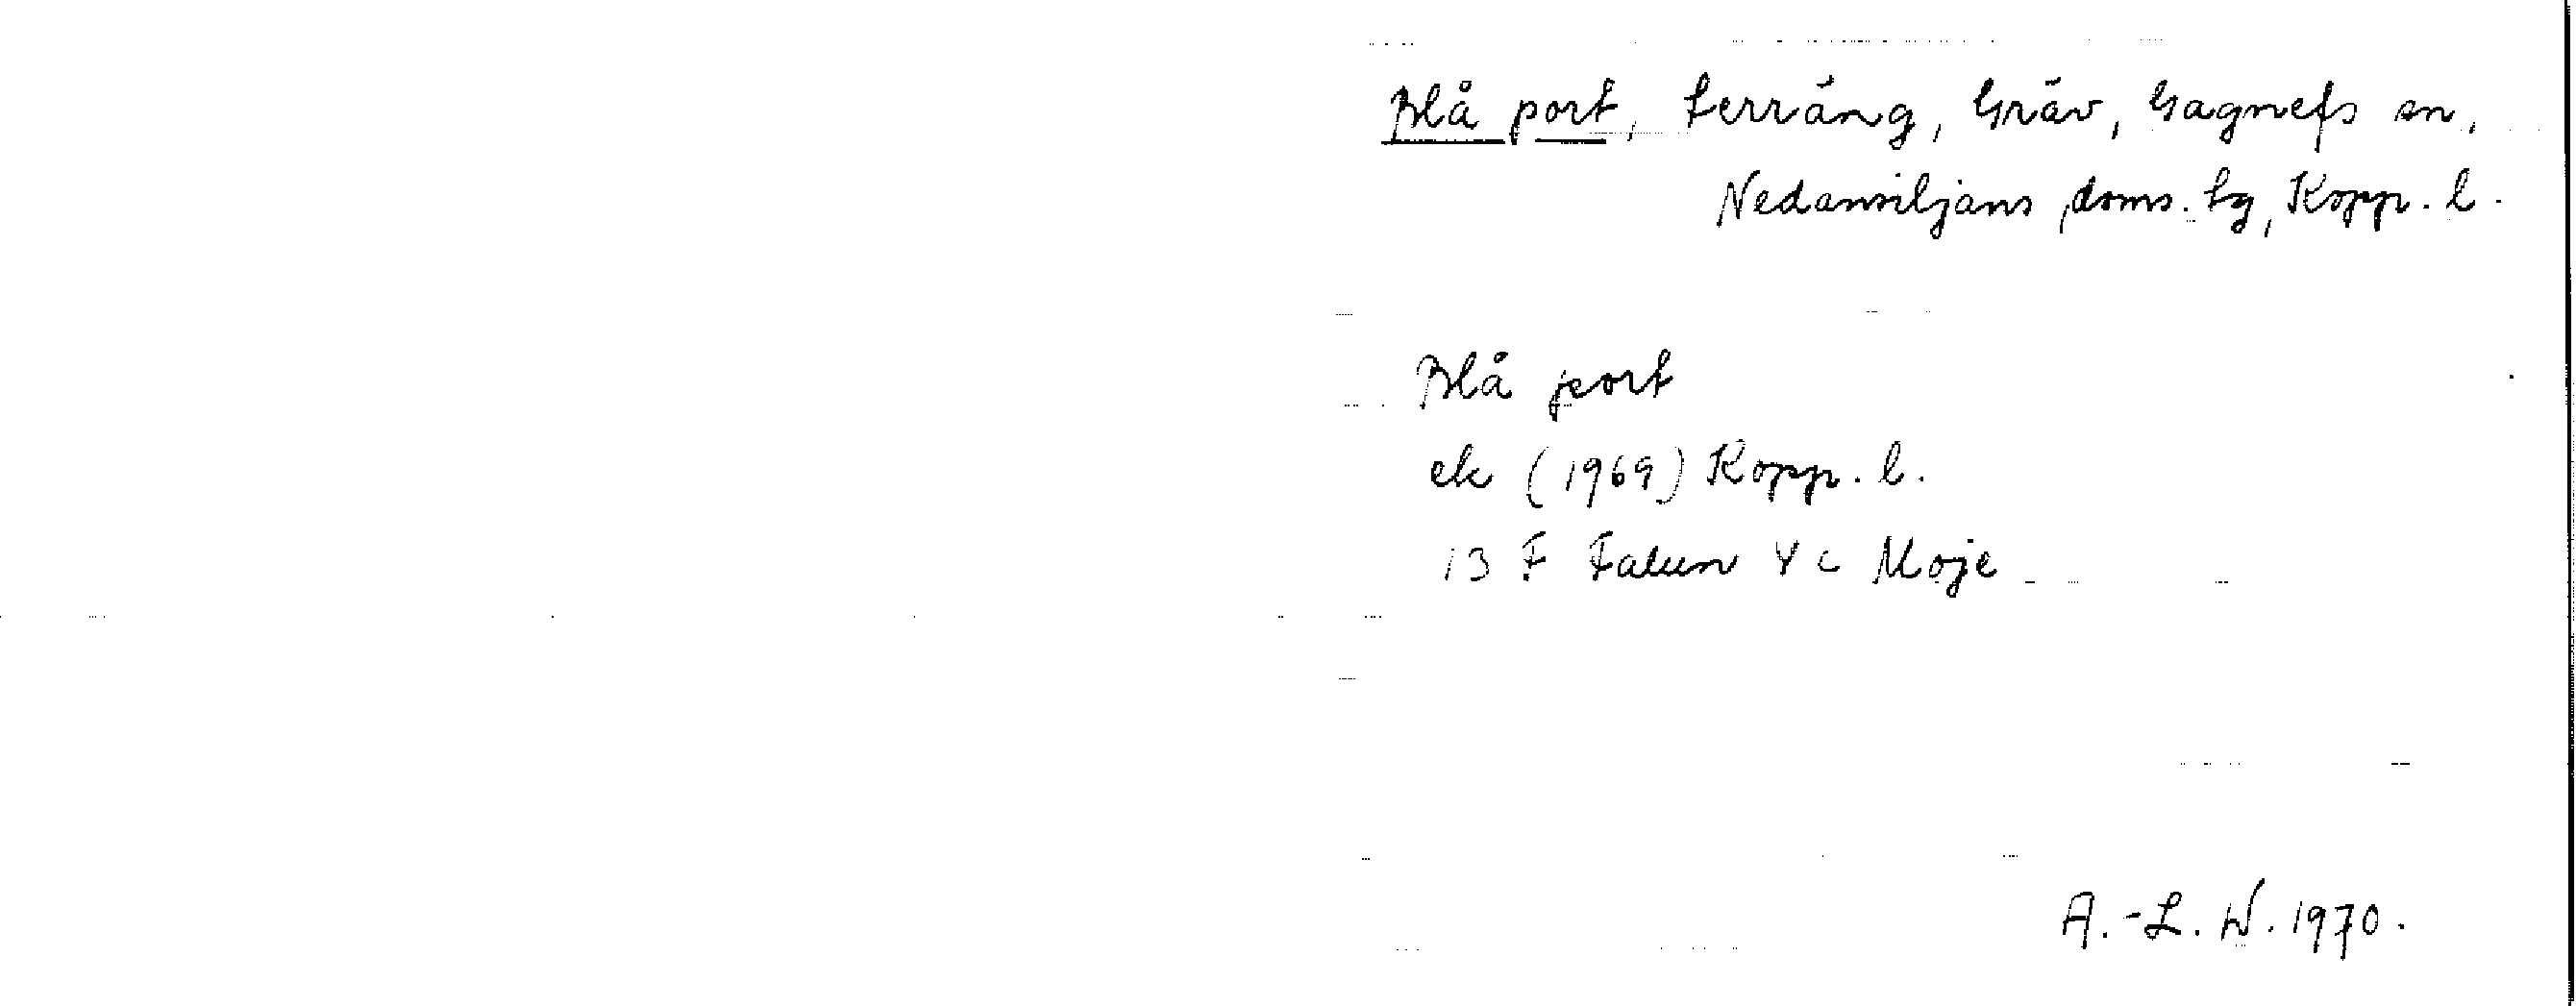 Blå port, terräng, Gräv, Gagnefs sn,
Nedansiljans doms. tg, Kopp. l.
Blå port
ek (1969) Kopp. l.
13 F Falun 4 c Moje
A.-L. W. 1970.